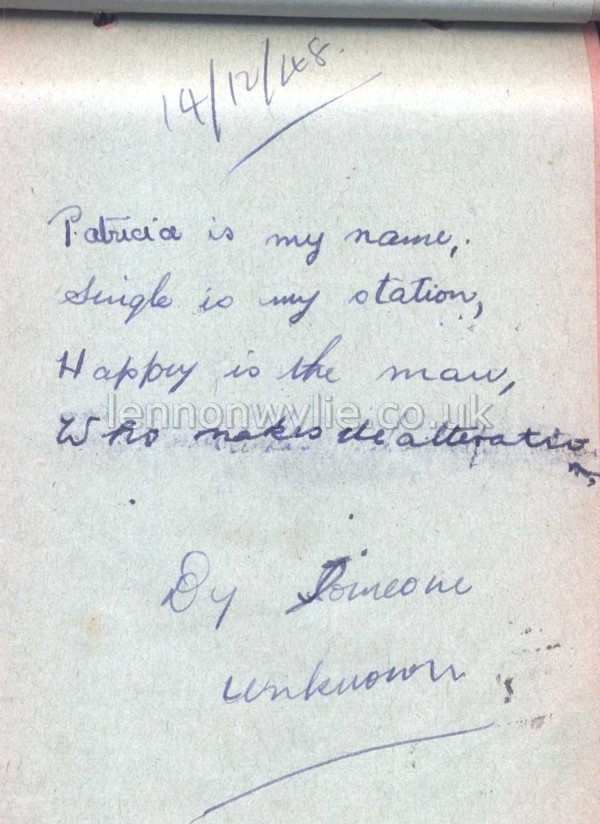 14/12/48.
Patricia is my name,.
Single is my station,
Happey is the man,
lennonwylie.co.uk
Who makes the alteration,
By Someone
unknown